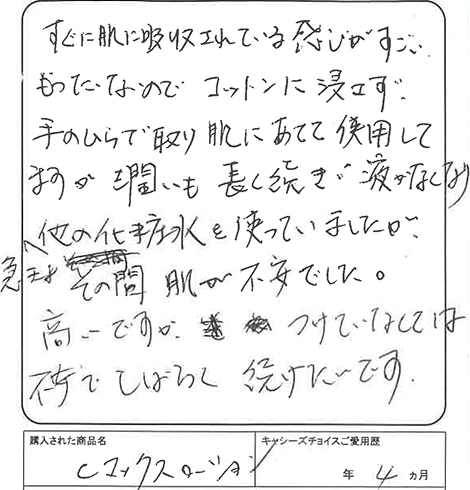 すぐに肌に吸収されている感じがすごい。
もったいないので コットンに浸さず、
手のひらで取り肌にあてて使用して
ますが 潤いも長く続き 液がなくなり
急きょ他の化粧水を使っていましたが、
その間 肌が不安でした。
高いですが、つけていなくては
不安で しばらく 続けたいです。
購入された商品名
キャシーズチョイスご愛用歴
Cマックスローション
年 4 ヵ月